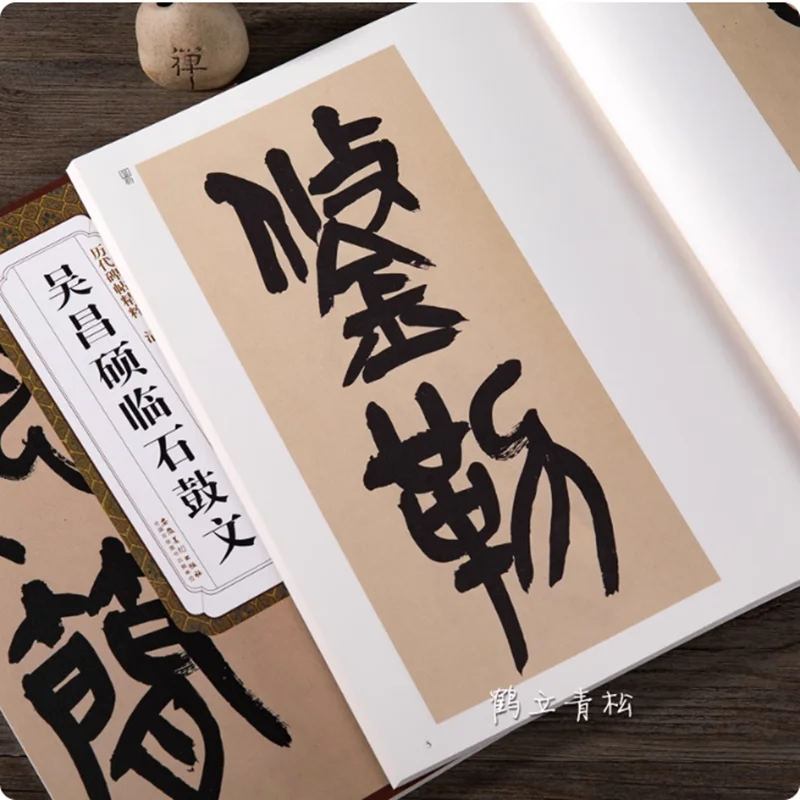 禅
鋚勒
历代碑帖精粹
吴昌硕临石鼓文
5
鹤立青松